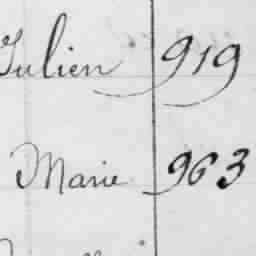 Julien 919
Marie 963